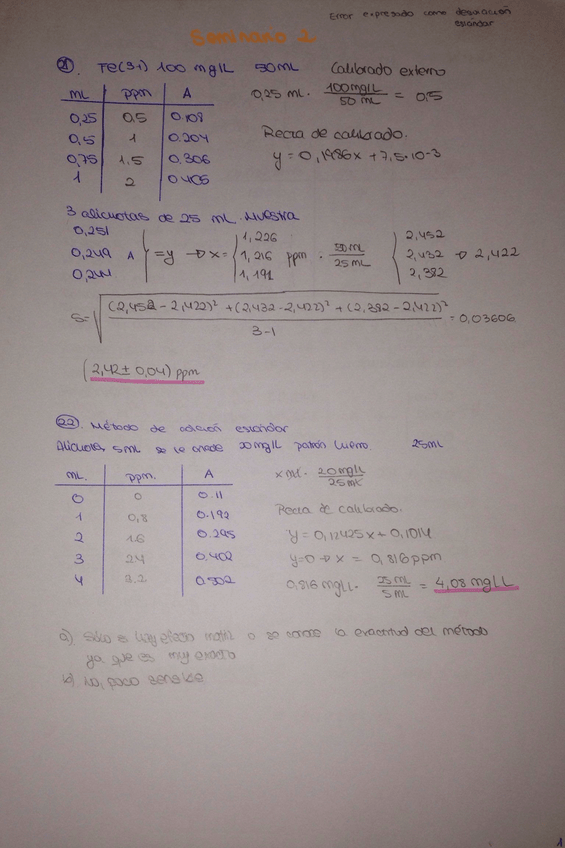 Error expresado como desviación
estándar
Seminario 2
21. Fe(3+) 100 mg/L 50mL Calibrado externo
mL ppm A
0,25 0.5 0.108
0,5 1 0.204
0,75 1.5 0.306
1 2 0.405
0,25 mL · 100mg/L / 50 mL = 0,5
Recta de calibrado.
y = 0,1986x + 7,5·10-3
3 alicuotas de 25 mL muestra
0,251
0,249 A = y → x =
0,244
1,226
1,216 ppm · 50mL / 25mL
1,191
2,452
2,432 → 2,422
2,382
S = √ (2,452 - 2,422)² + (2,432 - 2,422)² + (2,382 - 2,422)² / 3-1 = 0,03606
(2,42 ± 0,04) ppm
22. Método de adición estándar
Alicuotas 5mL se le añade 20mg/L patrón 25ml
mL. ppm. A
0 0 0.11
1 0,8 0.192
2 1.6 0.295
3 2.4 0.402
4 3.2 0.502
x ml · 20mg/L / 25mL
Recta de calibrado.
y = 0,12425x + 0,1014
y=0 → x = 0,816 ppm
0,816 mg/L · 25 mL / 5 mL = 4,08 mg/L
a) Sólo si hay efecto o se conoce la exactitud del método
ya que es muy exacto
b) No, poco sensible
1